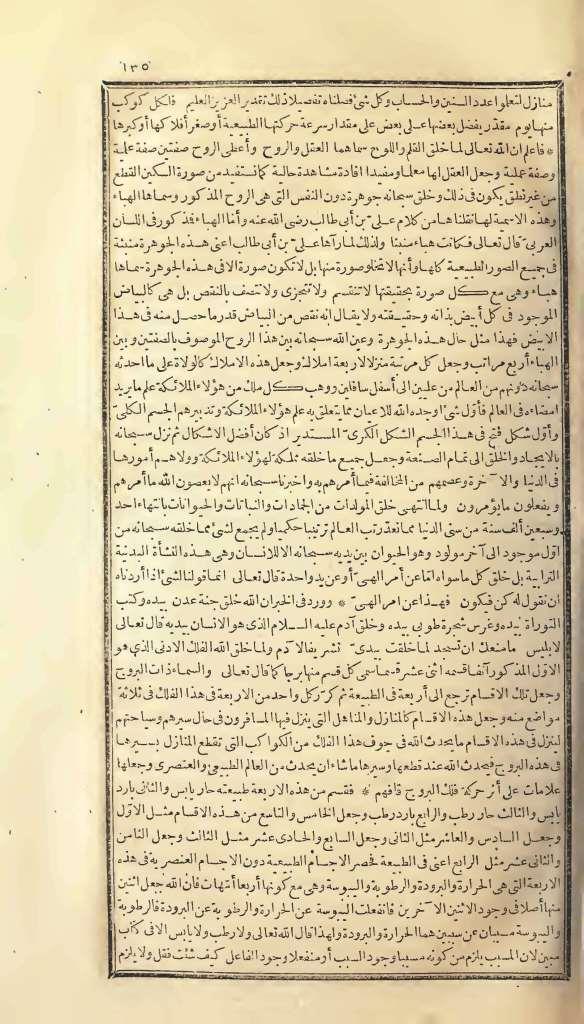 ١٣٥
منازل لتعلموا عدد السنين والحساب وكل شئ فصلناه تفصيلا ذلك تقدير العزيز العليم فلكل كوكب
منها يوم مقدر يفضل بعضها على بعض على مقدار سرعة حركتها الطبيعية أو صغر أفلاكها أو كبرها
* فاعلم ان الله تعالى لما خلق القلم واللوح سماهما العقل والروح وأعطى الروح صفتين صفة علمية
وصفة عملية وجعل العقل لها معلما ومفيدا افادة مشاهدة حالية كما تستفيد من صورة السكين القطع
من غير نطق يكون فى ذلك وخلق سبحانه جوهرة دون النفس التى هى الروح المذكور وسماها الهباء
وهذه الاسمية لها نقلناها من كلام على بن أبى طالب رضى الله عنه وأما الهباء فذكور فى اللسان
العربى قال تعالى فكانت هباء منبثا ولذلك لما رآها على بن أبى طالب اعنى هذه الجوهرة منبثة
فى جميع الصور الطبيعية كلها وأنها لا تخلو صورة منها بل لا تكون صورة الا فى هذه الجوهرة سماها
هباء وهى مع كل صورة بحقيقتها لا تنقسم ولا تتجزى ولا تتصف بالنقص بل هى كالبياض
الموجود فى كل أبيض بذاته وحقيقته ولا يقال انه نقص من البياض قدر ما حصل منه فى هذا
الابيض فهذا مثل حال هذه الجوهرة وعين الله سبحانه بين هذا الروح الموصوف بالصفتين وبين
الهباء أربع مراتب وجعل كل مرتبة منزلا لاربعة املاك وجعل هذه الاملاك كالولاة على ما احدثه
سبحانه دونهم من العالم من عليين الى أسفل سافلين ووهب كل ملك من هؤلاء الملائكة علم ما يريد
امضاءه فى العالم فأول شئ اوجده الله للاعيان مما يتعلق به علم هؤلاء الملائكة وتدبيرهم الجسم الكلى
وأول شكل فتح فى هذا الجسم الشكل الكرى المستدير اذ كان أفضل الاشكال ثم نزل سبحانه
بالايجاد والخلق الى تمام الصنعة وجعل جميع ما خلقه مملكة لهؤلاء الملائكة وولاهم أمورها
فى الدنيا والآخرة وعصمهم من المخالفة فيما أمرهم به واخبرنا سبحانه انهم لا يعصون الله ما أمرهم
ويفعلون ما يؤمرون ولما انتهى خلق المولدات من الجمادات والنباتات والحيوانات بانتهاء احد
وسبعين ألف سنة من سنى الدنيا مما نعد رتب العالم ترتيبا حكميا ولم يجمع لشئ مما خلقه سبحانه من
اول موجود الى آخر مولود وهو الحيوان بين يديه سبحانه الا للانسان وهى هذه النشأة البدنية
الترابية بل خلق كل ما سواه اما عن أمر الهى أو عن يد واحدة قال تعالى انما قولنا لشئ اذا أردناه
ان نقول له كن فيكون فهذا عن امر الهى * وورد فى الخبر ان الله خلق جنة عدن بيده وكتب
التوراة بيده وغرس شجرة طوبى بيده وخلق آدم عليه السلام الذى هو الانسان بيديه قال تعالى
لابليس ما منعك ان تسجد لما خلقت بيدى تشريفا لآدم ولما خلق الله الفلك الادنى الذى هو
الاول المذكور آنفا قسمه اثنى عشر قسما سمى كل قسم منها برجا كما قال تعالى والسماء ذات البروج
وجعل تلك الاقسام ترجع الى أربعة فى الطبيعة ثم كرر كل واحد من الاربعة فى هذا الفلك فى ثلاثة
مواضع منه وجعل هذه الاقسام كالمنازل والمناهل التى ينزل فيها المسافرون فى حال سيرهم وسياحتهم
لينزل فى هذه الاقسام ما يحدث الله فى جوف هذا الفلك من الكواكب التى تقطع المنازل بسيرها
فى هذه البروج فيحدث الله عند قطعها وسيرها ما شاء ان يحدث من العالم الطبيعى والعنصرى وجعلها
علامات على أثر حركة فلك البروج فافهم * فقسم من هذه الاربعة طبيعته حار يابس والثانى بارد
يابس والثالث حار رطب والرابع بارد رطب وجعل الخامس والتاسع من هذه الاقسام مثل الاول
وجعل السادس والعاشر مثل الثانى وجعل السابع والحادى عشر مثل الثالث وجعل الثامن
والثانى عشر مثل الرابع اعنى فى الطبيعة فحصر الاجسام الطبيعية دون الاجسام العنصرية فى هذه
الاربعة التى هى الحرارة والبرودة والرطوبة واليبوسة وهى مع كونها أربعا أمهات فان الله جعل اثنين
منها أصلا فى وجود الاثنين الآخرين فانفعلت اليبوسة عن الحرارة والرطوبة عن البرودة فالرطوبة
واليبوسة مسببان عن سببين هما الحرارة والبرودة ولهذا قال الله تعالى ولا رطب ولا يابس الا فى كتاب
مبين لان المسبب يلزم من كونه مسببا وجود السبب أو منفعلا وجود الفاعل كيف شئت فقل ولا يلزم